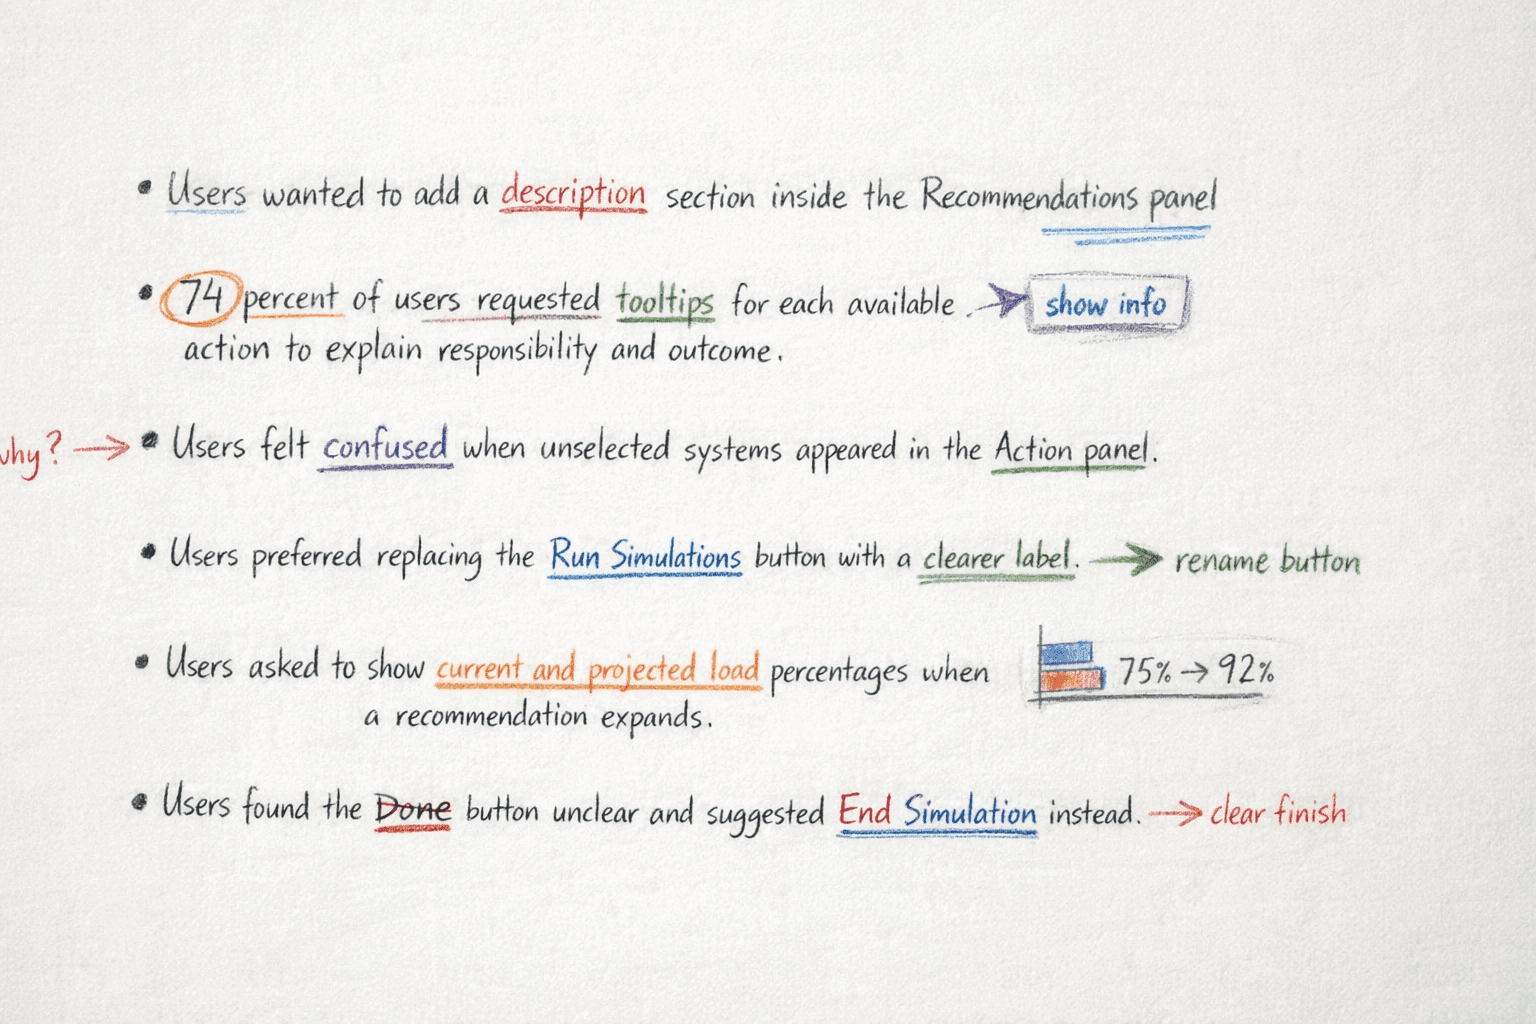 • Users wanted to add a description section inside the Recommendations panel
• 74 percent of users requested tooltips for each available . → show info
action to explain responsibility and outcome.
why? → • Users felt confused when unselected systems appeared in the Action panel.
• Users preferred replacing the Run Simulations button with a clearer label. → rename button
• Users asked to show current and projected load percentages when 75% → 92%
a recommendation expands.
• Users found the Done button unclear and suggested End Simulation instead. → clear finish